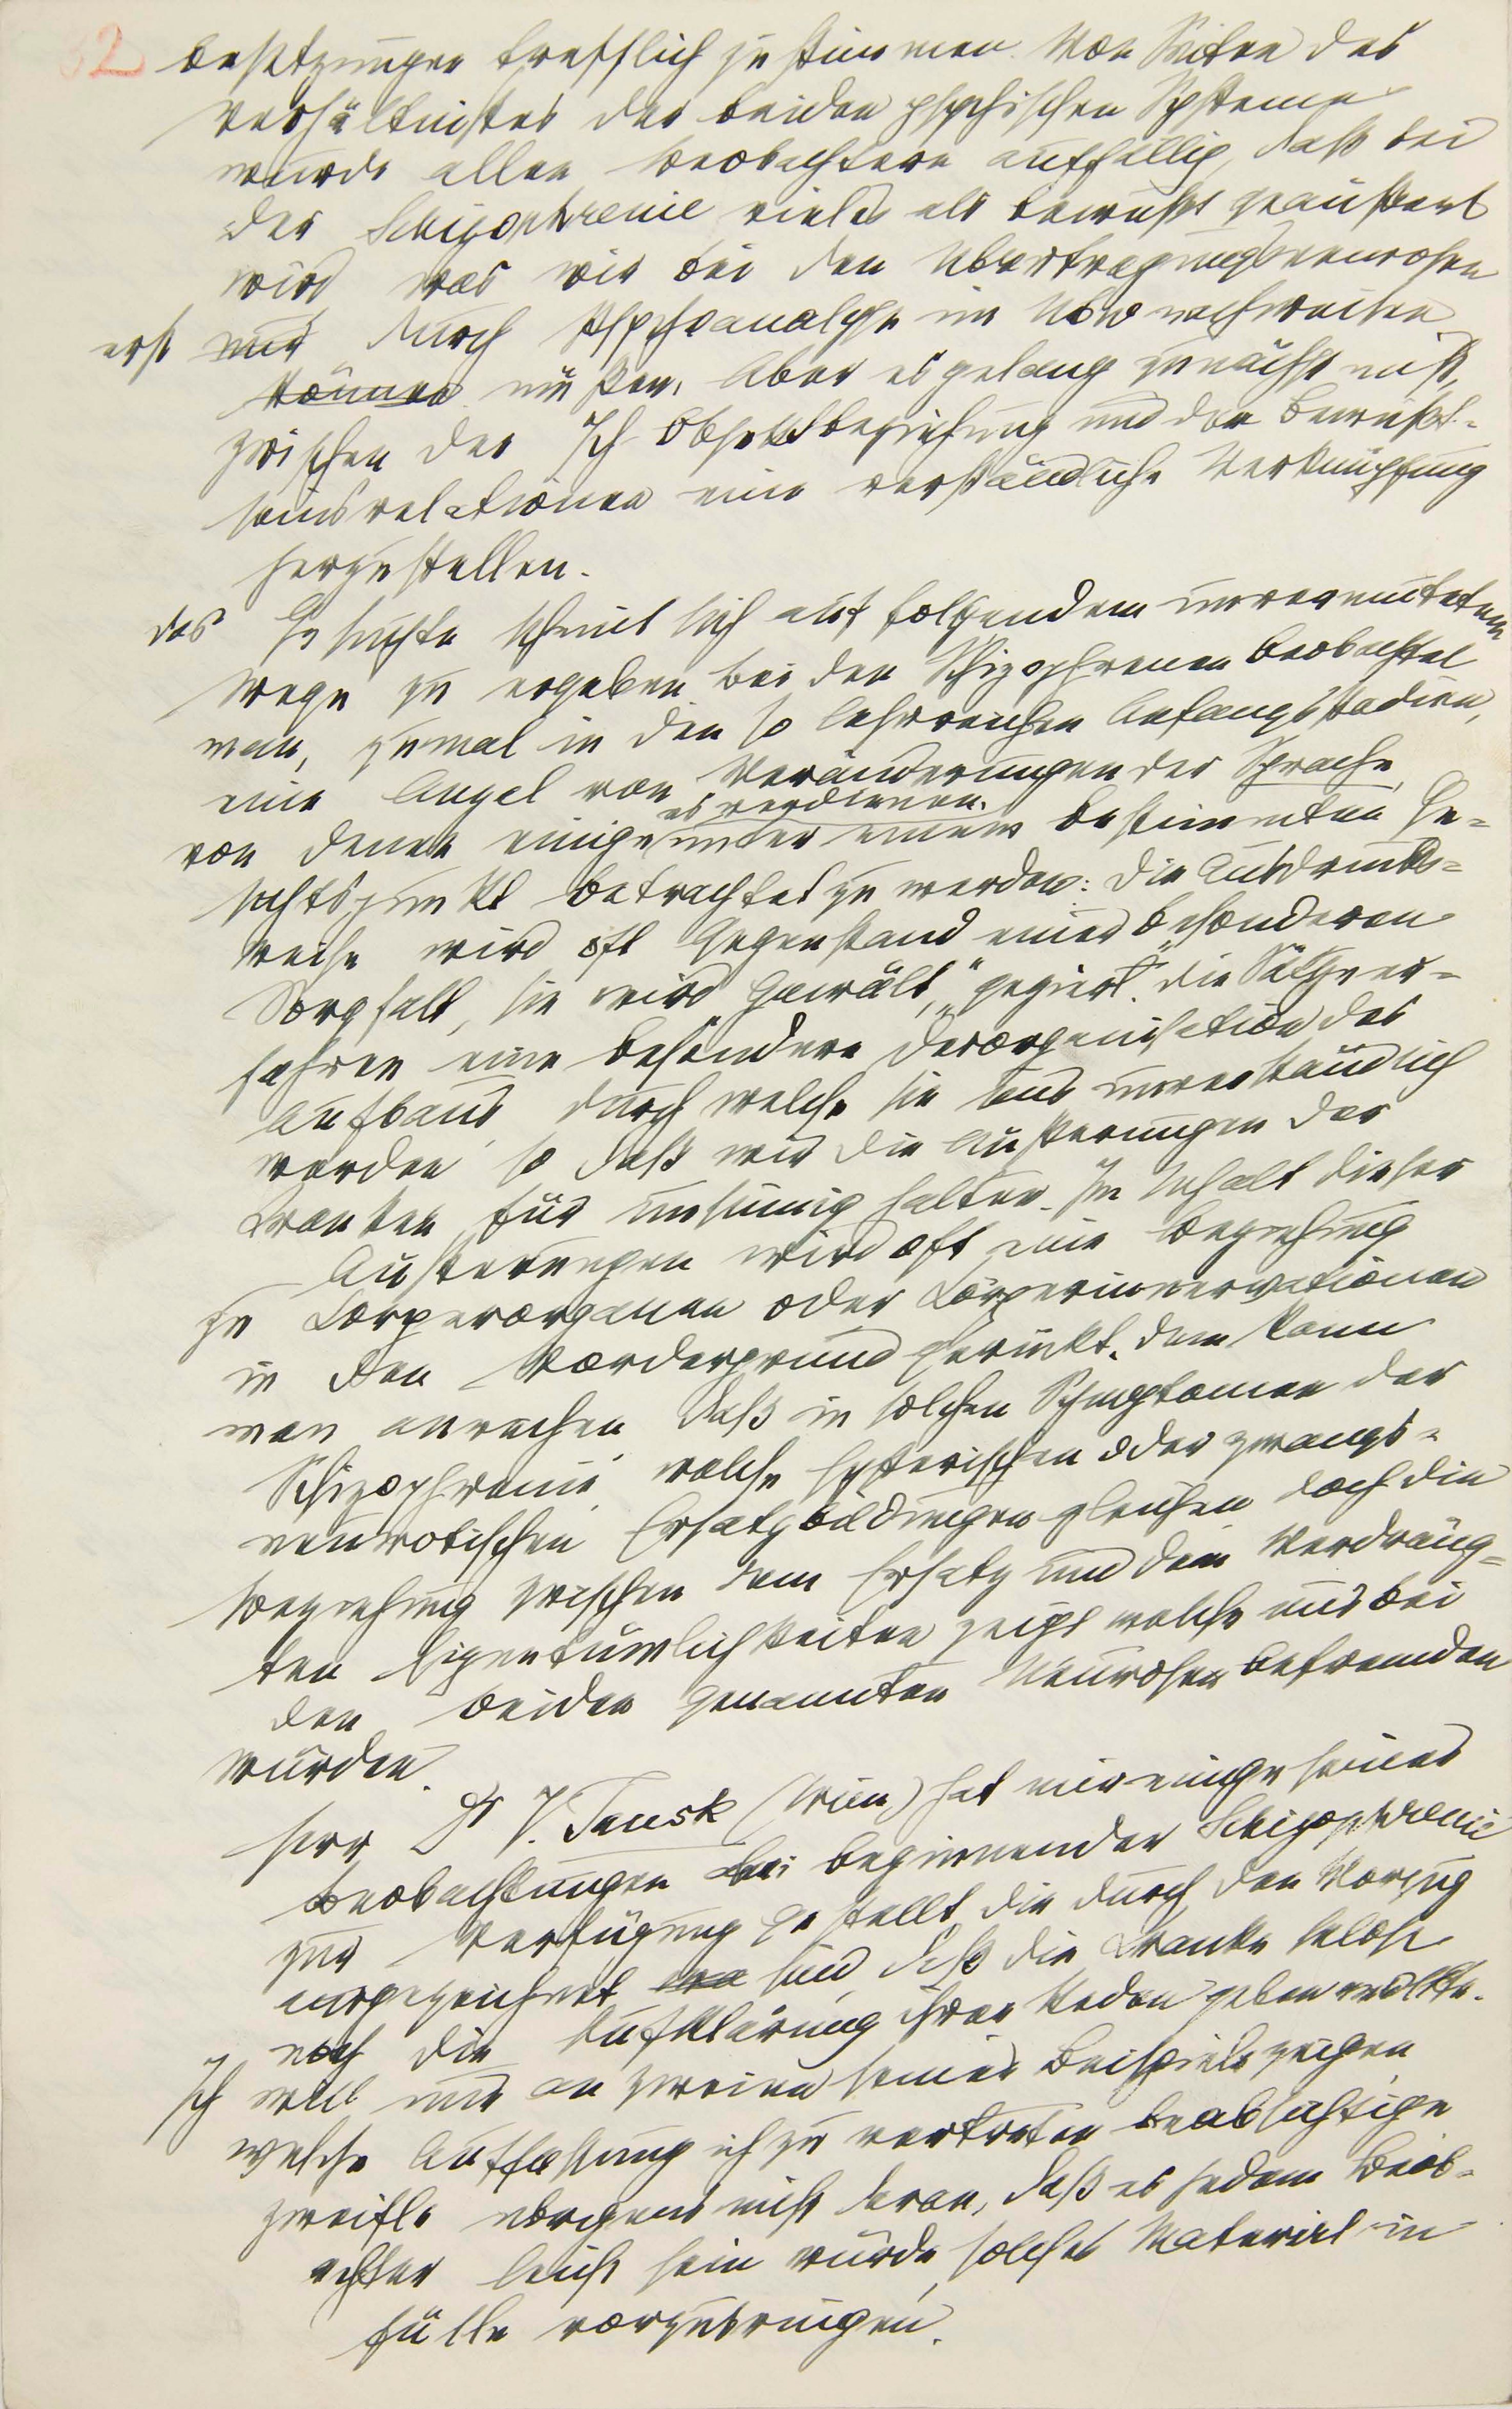 32 besetzungen trefflich zu stimmen. Von Seiten des
Verhältnisses der beiden psychischen Systeme
wurde allen Beobachtern auffällig, daß bei
der Schizophrenie vieles als bewußt geäußert
wird was wir bei den Übertragungsneurosen
erst nur durch Psychoanalyse im Ubw nachweisen
können müßen. Aber es gelang zunächst nicht,
zwischen der Ich-Objektbeziehung und den Bewußt-
seinsrelationen eine verständliche Verknüpfung
herzustellen.
das Gesuchte scheint sich auf folgendem unvermuteten
Wege zu ergeben. bei den Schizophrenen beobachtet
man, zumal in den so lehrreichen Anfangsstadien,
eine Anzahl von Veränderungen der Sprache,
es verdienen.
von denen einige unter einem bestimmten Ge-
sichtspunkt betrachtet zu werden: die Ausdrucks-
weise wird oft Gegenstand einer besonderen
Sorgfalt, sie wird „gewält," „geziert." die Sätze er-
fahren eine besondere Desorganisation des
Aufbaus, durch welche sie uns unverständlich
werden so daß wir die Äußerungen der
Kranken für unsinnig halten. Im Inhalt dieser
Äußerungen wird oft eine Beziehung
zu Körperorganen oder Körperinnervationen
in den Vordergrund gerückt. dem kann
man anreihen, daß in solchen Symptomen der
Schizophrenie, welche hysterischen oder zwangs-
neurotischen Ersatzbildungen gleichen doch die
Beziehung zwischen dem Ersatz und dem Verdräng-
ten Eigentümlichkeiten zeigt welche uns bei
den beiden genannten Neurosen befremden
würden.
Herr Dr V. Tausk (Wien) hat mir einige seiner
Beobachtungen bei beginnender Schizophrenie
zur Verfügung gestellt die durch den Vorzug
ausgezeichnet sind, daß die Kranke selbst
noch die Aufklärung ihrer Reden geben wollte.
Ich will nun an zweien seiner Beispiele zeigen
welche Auffassung ich zu vertreten beabsichtige
zweifle übrigens nicht daran, daß es jedem Beob-
achter leicht sein würde, solches Material in
Fülle vorzubringen.